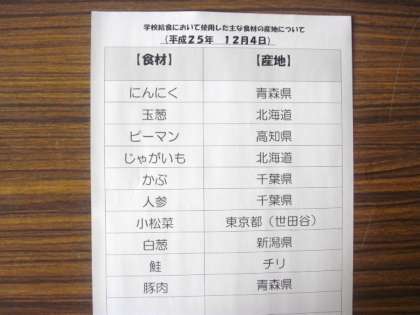 学校給食において使用した主な食材の産地について
（平成２５年　１２月４日）
【食材】　【産地】
にんにく　青森県
玉葱　北海道
ピーマン　高知県
じゃがいも　北海道
かぶ　千葉県
人参　千葉県
小松菜　東京都（世田谷）
白葱　新潟県
鮭　チリ
豚肉　青森県